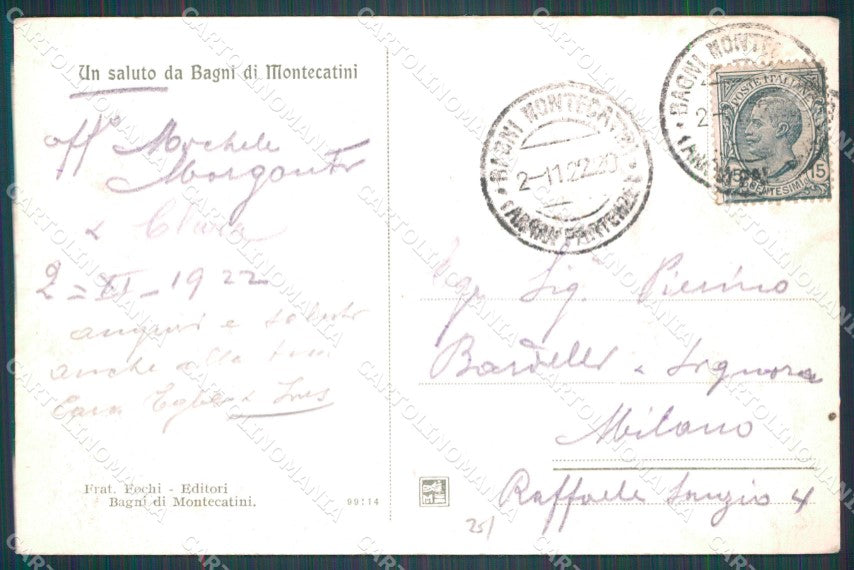 Un saluto da Bagni di Montecatini
Michele
Morganti
e Clara
2=XI_1922
auguri e saluti
anche alla tua
Cara Egle e Ines
Frat. Fochi - Editori
Bagni di Montecatini.
99114
BAGNI MONTECATINI
2-11.22.20
(ARRIVI PARTENZE)
BAGNI MONTECATINI
POSTE ITALIANE
15 CENTESIMI 15
Sig. Pierino
Bardelli e Signora
Milano
Raffaele Sanzio 4
25/
CARTOLINOMANIA